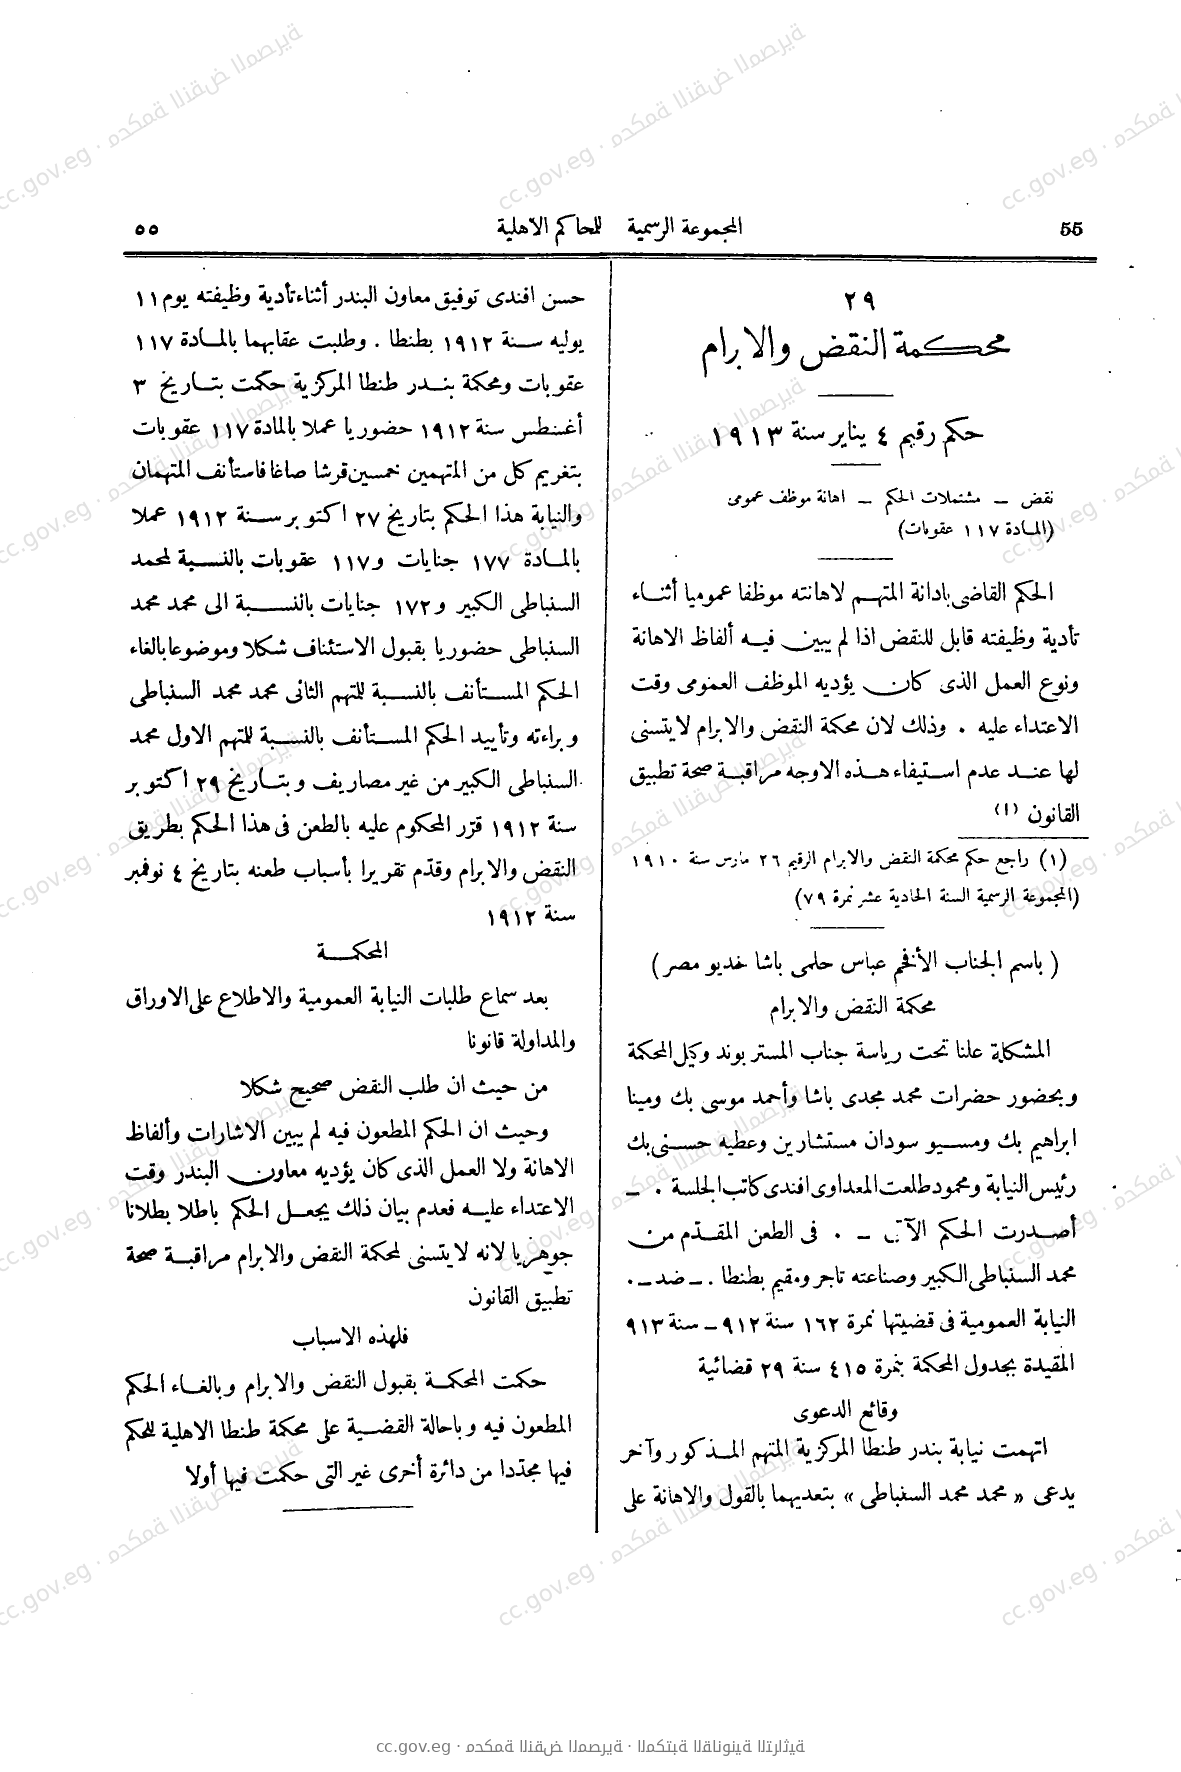 55 المجموعة الرسمية للمحاكم الاهلية ٥٥
٢٩
محكمة النقض والابرام
حكم رقيم ٤ يناير سنة ١٩١٣
نقض – مشتملات الحكم – اهانة موظف عمومى
(المادة ١١٧ عقوبات)
الحكم القاضى بادانة المتهم لاهانته موظفا عموميا أثناء
تأدية وظيفته قابل للنقض اذا لم يبين فيه ألفاظ الاهانة
ونوع العمل الذى كان يؤديه الموظف العمومى وقت
الاعتداء عليه . وذلك لان محكمة النقض والابرام لا يتسنى
لها عند عدم استيفاء هذه الاوجه مراقبة صحة تطبيق
القانون (١)
(١) راجع حكم محكمة النقض والابرام الرقيم ٢٦ مارس سنة ١٩١٠
(المجموعة الرسمية السنة الحادية عشر نمرة ٧٩)
( باسم الجناب الأفخم عباس حلمى باشا خديو مصر )
محكمة النقض والابرام
المشكلة علنا تحت رياسة جناب المستر بوند وكيل المحكمة
وبحضور حضرات محمد مجدى باشا وأحمد موسى بك ومينا
ابراهيم بك ومسيو سودان مستشارين وعطيه حسنى بك
رئيس النيابة ومحمود طلعت المعداوى افندى كاتب الجلسة . –
أصدرت الحكم الآتى – . فى الطعن المقدّم من
محمد السنباطى الكبير وصناعته تاجر ومقيم بطنطا . – ضد – .
النيابة العمومية فى قضيتها نمرة ١٦٢ سنة ٩١٢ – سنة ٩١٣
المقيدة بجدول المحكمة بنمرة ٤١٥ سنة ٢٩ قضائية
وقائع الدعوى
اتهمت نيابة بندر طنطا المركزية المتهم المذكور وآخر
يدعى « محمد محمد السنباطى » بتعديهما بالقول والاهانة على
حسن افندى توفيق معاون البندر أثناء تأدية وظيفته يوم ١١
يوليه سنة ١٩١٢ بطنطا . وطلبت عقابهما بالمادة ١١٧
عقوبات ومحكمة بندر طنطا المركزية حكمت بتاريخ ٣
أغسطس سنة ١٩١٢ حضوريا عملا بالمادة ١١٧ عقوبات
بتغريم كل من المتهمين خمسين قرشا صاغا فاستأنف المتهمان
والنيابة هذا الحكم بتاريخ ٢٧ اكتوبر سنة ١٩١٢ عملا
بالمادة ١٧٧ جنايات و١١٧ عقوبات بالنسبة لمحمد
السنباطى الكبير و١٧٢ جنايات بالنسبة الى محمد محمد
السنباطى حضوريا بقبول الاستئناف شكلا وموضوعا بالغاء
الحكم المستأنف بالنسبة للمتهم الثانى محمد محمد السنباطى
وبراءته وتأييد الحكم المستأنف بالنسبة للمتهم الاول محمد
السنباطى الكبير من غير مصاريف وبتاريخ ٢٩ اكتوبر
سنة ١٩١٢ قرّر المحكوم عليه بالطعن فى هذا الحكم بطريق
النقض والابرام وقدّم تقريرا بأسباب طعنه بتاريخ ٤ نوفمبر
سنة ١٩١٢
المحكمة
بعد سماع طلبات النيابة العمومية والاطلاع على الاوراق
والمداولة قانونا
من حيث ان طلب النقض صحيح شكلا
وحيث ان الحكم المطعون فيه لم يبين الاشارات وألفاظ
الاهانة ولا العمل الذى كان يؤديه معاون البندر وقت
الاعتداء عليه فعدم بيان ذلك يجعل الحكم باطلا بطلانا
جوهريا لانه لا يتسنى لمحكمة النقض والابرام مراقبة صحة
تطبيق القانون
فلهذه الاسباب
حكمت المحكمة بقبول النقض والابرام وبالغاء الحكم
المطعون فيه وباحالة القضية على محكمة طنطا الاهلية للحكم
فيها مجدّدا من دائرة أخرى غير التى حكمت فيها أولا
cc.gov.eg · محكمة النقض المصرية · المكتبة القانونية التراثية